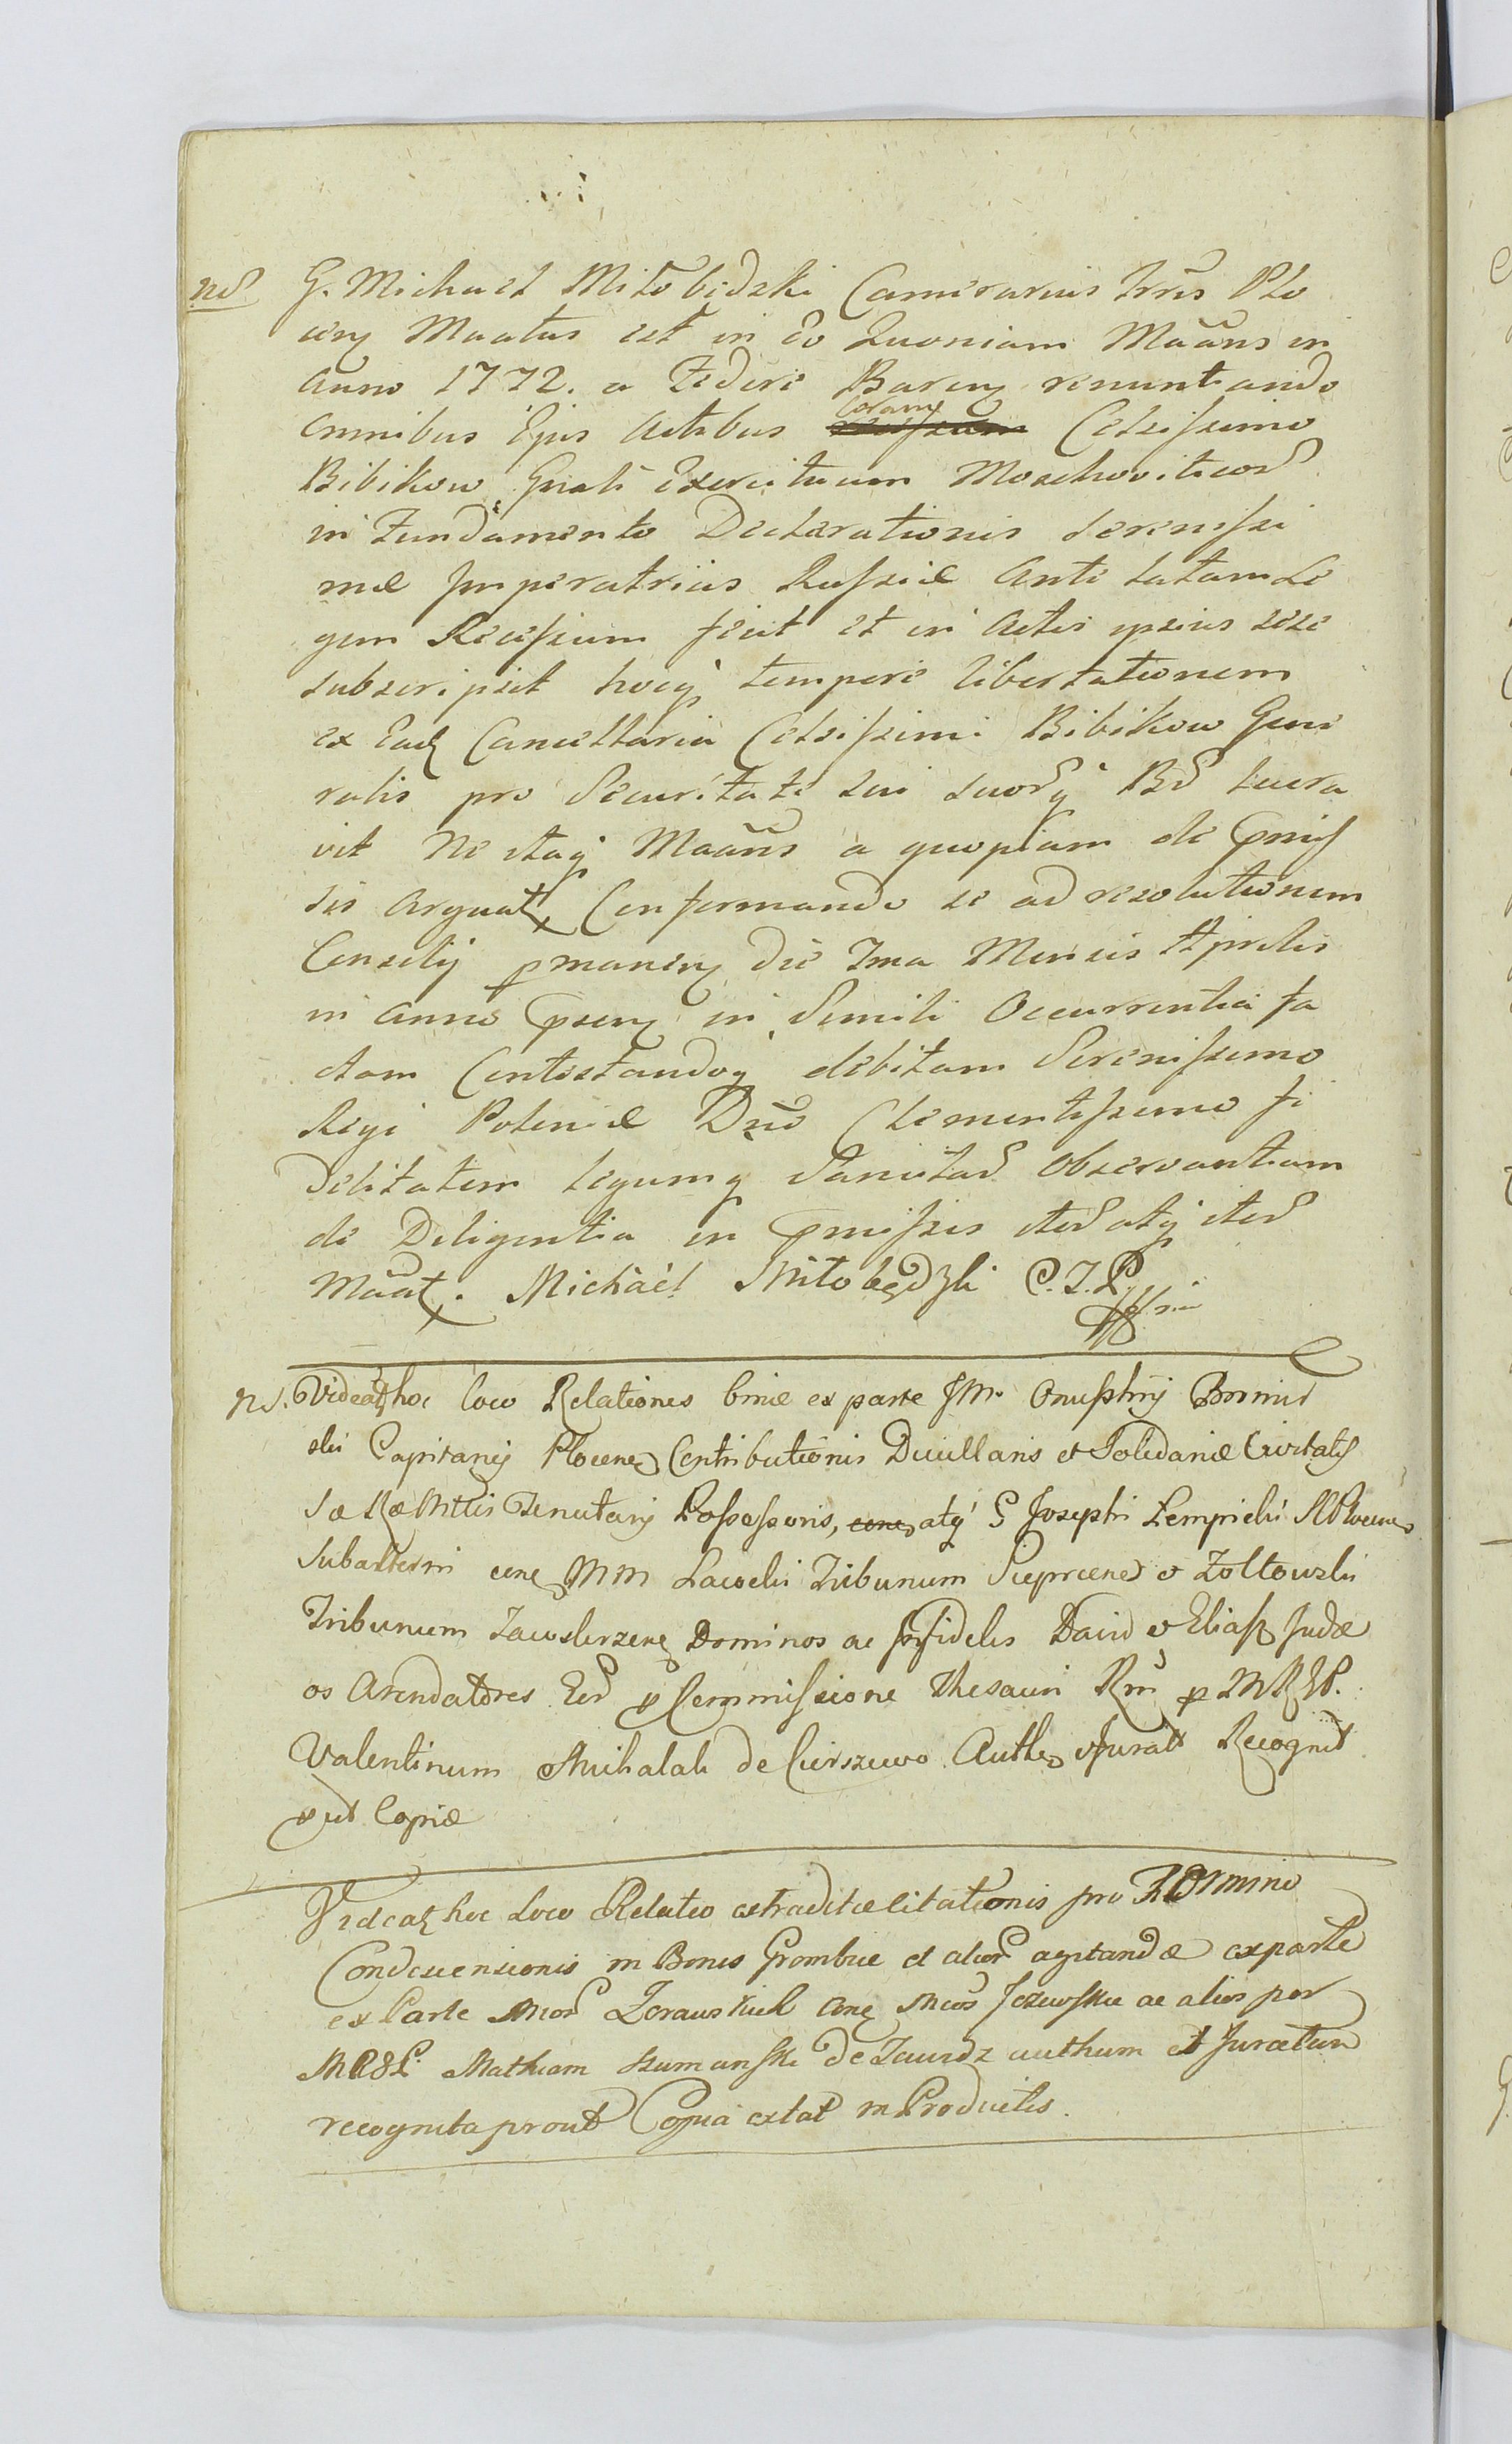 nd G. Michael Miłobędzki Camerarius Trris Plo
cen Maatus est in eo Quoniam Maans in
Anno 1772. a Federe Baren renuntiando
omnibus Ejus Actibus coram Celsissimo
Bibikow Gnali Exercituum Moschoviticor
in Fundamento Declarationis Serenissi
mæ Imperatricis Russiæ Ante latam Le
gem Recessum fecit et in Actis ipsius sese
subscripsit hocq tempore libertationem
ex Ead Cancellaria Celsissimi Bibikow Gene
ralis pro Securitate sui suorq Br lucra
vit Ne itaq Maans a quopiam de pmis
sis Arguat, Conformando se ad resolutionem
Consilij pmanen die 7ma Mensis Aprilis
in Anno psen in Simili Occurrentia fa
ctam Contestandoq debitam Serenissimo
Regi Poloniæ Dno Clementissimo fi
delitatem legumq Sancitar observantiam
de Diligentia in pmissis iter atq iter
Maat. Michał Miłobędzki C.Z.P.
nd. Videat hoc loco Relationes binæ ex parte JM. Onuphrij Bromir
ski Capitanej Plocen Contributionis Ducillaris et Soledaniæ Civitatis
S æ Ræ Mttis Tenutarij Possessoris, conq atq G Josephi Lempicki Plocen
Subalterni conq MM Lasocki Tribunum Sieprcen et Zoltowski
Tribunum Zawskrzen Dominos ac Infideles David et Eliasz Judæ
os Arendatores Eor p Commissione Thesauri Rni p MRGP.
Valentinum Michalak de Cierszewo Auth et Jurat Recognit
put Copiæ
Videat hoc Loco Relatio extraditæ citationis pro Termino
Condescensionis in Bonis Grombice et alior agitandæ ex parte
ex Parte Mcor Zorawskich conq Mcos Jezewskie ac alios per
MRGP. Mathiam Szumanski de Zawidz authum et Juratum
recognita prout Copia extat in Productis.